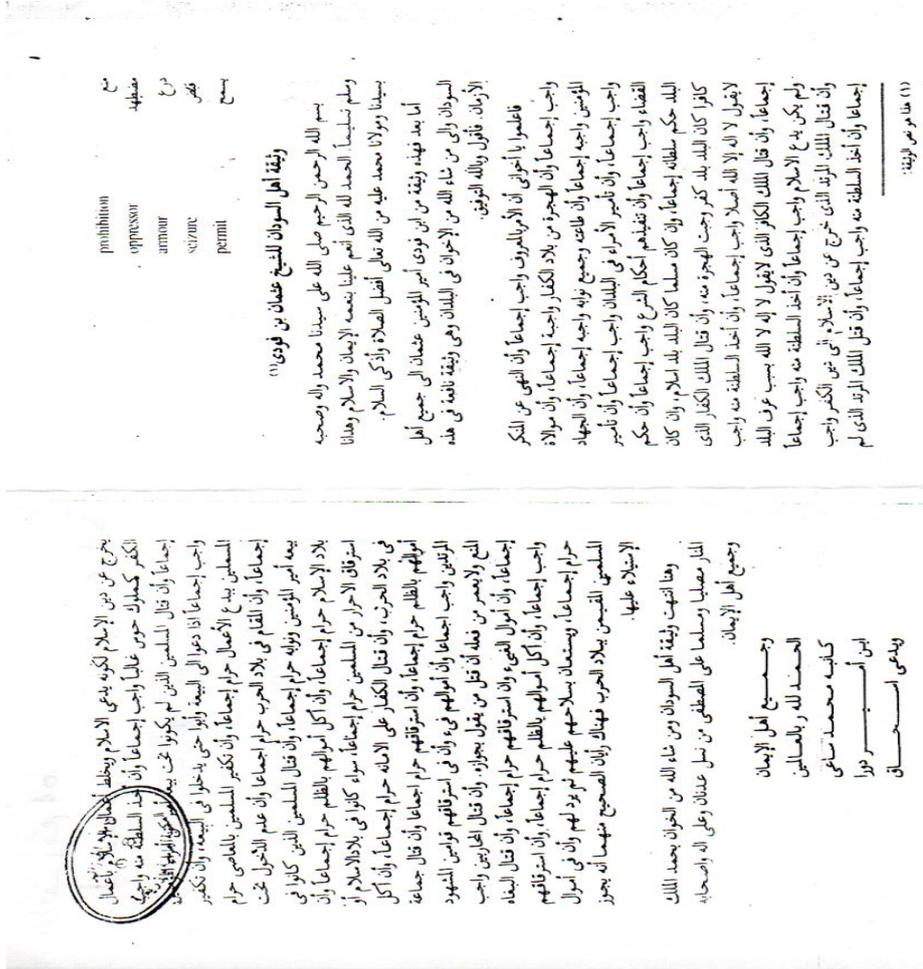 prohibition منع
oppressor مضطهد
armour درع
seizure قبض
permit يسمح
وثيقة أهل السودان للشيخ عثمان بن فودى (١)
بسم الله الرحمن الرحيم صلى الله على سيدنا محمد واله وصحبه
وسلم تسليماً الحمد لله الذى أنعم علينا بنعمه الإيمان والاسلام وهدانا
بسيدنا ومولانا محمد عليه من الله تعالى أفضل الصلاة وأذكى السلام.
أما بعد فهذه وثيقة من ابن فودى أمير المؤمنين عثمان الى جميع أهل
السودان والى من شاء الله من الإخوان فى البلدان وهى وثيقة نافعة فى هذه
الأزمان. فأقول وبالله التوفيق.
فاعلموا يا أخوانى أن الأمر بالمعروف واجب إجماعاً وأن النهى عن المنكر
واجب إجماعاً وأن الهجرة من بلاد الكفار واجبة إجماعاً، وأن موالاة
المؤمنين واجبه إجماعاً وأن طاعته وجميع نوابه واجبه إجماعاً، وأن الجهاد
واجب إجماعاً، وأن تأمير الأمراء فى البلدان واجب إجماعاً وأن تأمير
القضاء واجب إجماعاً وأن تنفيذهم أحكام الشرع واجب إجماعاً وأن حكم
البلد حكم سلطانه إجماعاً، وإن كان مسلما كان البلد بلد اسلام، وان كان
كافرا كان البلد بلد كفر وجبت الهجرة منه، وأن قتال الملك الكفار الذى
لايقول لا اله إلا الله أصلا واجب إجماعاً، وأن أخذ السلطنة منه واجب
إجماعاً، وأن قتال الملك الكافر الذى لايقول لا إله لا الله بسبب عرف البلد
ولم يكن يدع الاسلام واجب إجماعاً وأن أخذ السلطنة منه واجب إجماعاً
وأن قتال الملك المرتد الذى خرج عن دين الاسلام الى دين الكفر واجب
إجماعا وأن أخذ السلطنة منه واجب إجماعاً، وأن قتل الملك المرتد الذى لم
(١) هذا هو نص الوثيقة.
يخرج عن دين الإسلام لكونه يدعى الاسلام ويخلط أعمال الإسلام بأعمال
الكفر كملوك حوس غالباً واجب إجماعاً وأن أخذ السلطنة منه واجب
إجماعاً وأن قتال المسلمين الذين لم يكونوا تحت بيعة
واجب إجماعاً اذا دعوا الى البيعة وأبوا حتى يدخلوا فى البيعه، وأن تكفير
المسلمين ببدع الأعمال حرام إجماعاً، وأن تكفير المسلمين بالمعاصى حرام
إجماعاً، وأن المقام فى بلاد الحرب حرام اجماعا وأن عدم الدخول تحت
بيعه أمير المؤمنين ونوابه حرام إجماعاً، وأن قتال المسلمين الذين كانوا فى
بلاد الإسلام حرام إجماعاً، وأن أكل أموالهم بالظلم حرام إجماعاً وأن
استرقاق الاحرار من المسلمين حرام إجماعاً، سواء كانوا فى بلادالاسلام أو
فى بلاد الحرب، وأن قتال الكفار على الامانه حرام إجماعاً، وأن أكل
أموالهم بالظلم حرام إجماعاً وأن استرقاقهم حرام اجماعا وأن قتال جماعة
المرتدين واجب اجماعا وأن أموالهم فىء وأن فى استرقاقهم قولين المشهور
المنع ولايعصر من فعله أن قتل من يقول بجوازه. وأن قتال المحاربين واجب
إجماعاً، وأن أموال الفىء وان استرقاقهم حرام إجماعاً، وأن قتال البغاه
واجب إجماعاً، وأن أكل أموالهم بالظلم حرام إجماعاً، وأن استرقاقهم
حرام إجماعاً، ويستعان بسلاحهم عليهم ثم يرد لهم وأن فى أموال
المسلمى المقيمين ببلاد الحرب فهناك رأيان الصحيح منهما أنه يجوز
الإستيلاء عليها.
وهنا انتهت وثيقة أهل السودان ومن شاء الله من الخوان بحمد الملك
المنار مصليا ومسلما على المصطفى من نسل عدنان وعلى اله واصحابه
وجميع أهل الإيمان.
وجميع أهل الإيمان
الحمد لله رب العالمين
كتابه محمد ساعى
ابن أمير دورا
ويدعى اسحاق